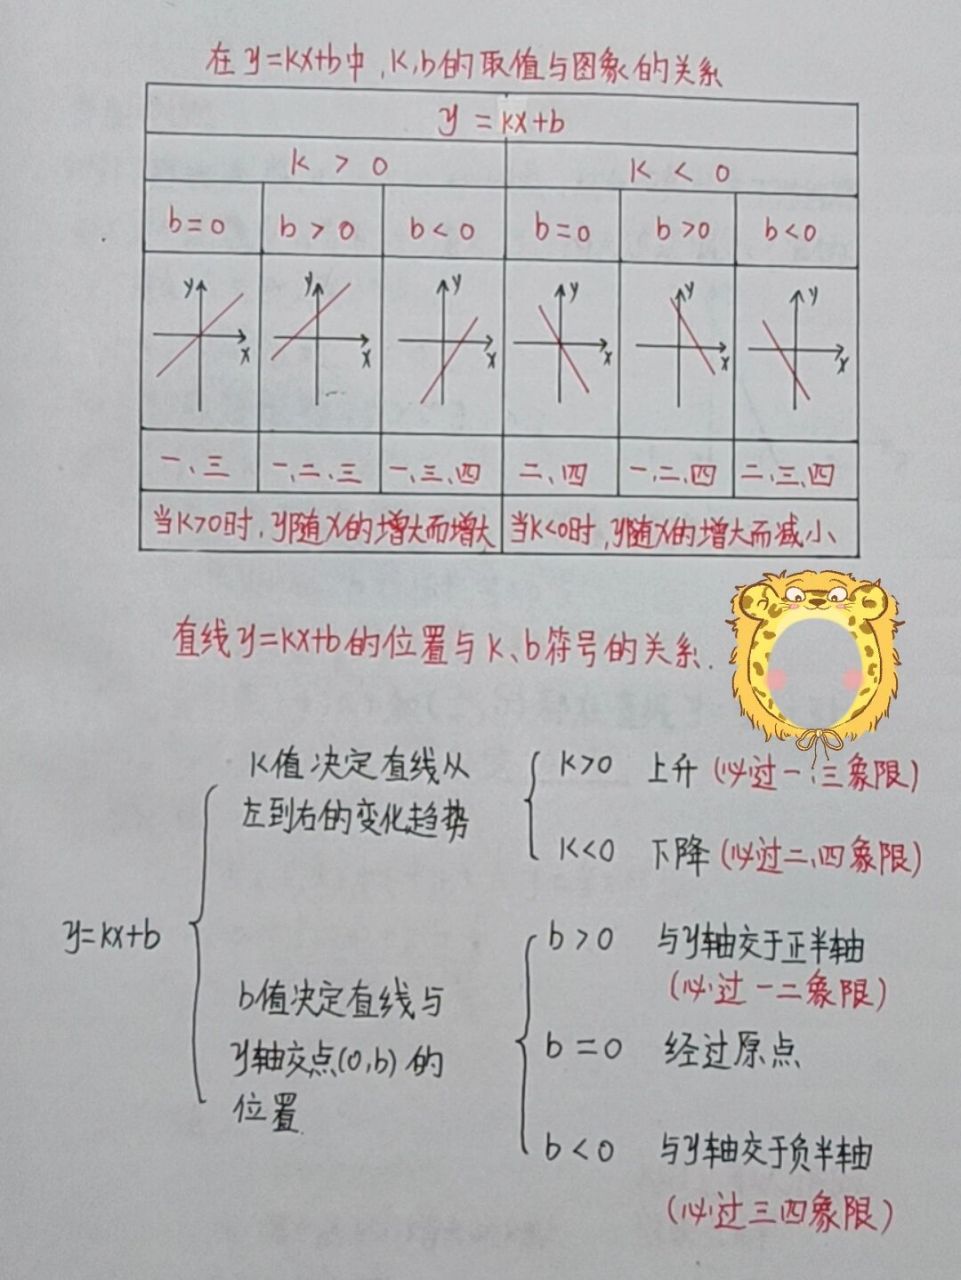 在y=kx+b中,k,b的取值与图象的关系
y=kx+b
k>0 k<0
b=0 b>0 b<0 b=0 b>0 b<0
y y y y y y
x x x x x x
一、三 一、二、三 一、三、四 二、四 一、二、四 二、三、四
当k>0时,y随x的增大而增大 当k<0时,y随x的增大而减小
直线y=kx+b的位置与k、b符号的关系.
y=kx+b
k值决定直线从
左到右的变化趋势
k>0 上升(必过一、三象限)
k<0 下降(必过二、四象限)
b值决定直线与
y轴交点(0,b)的
位置.
b>0 与y轴交于正半轴
(必过一二象限)
b=0 经过原点
b<0 与y轴交于负半轴
(必过三四象限)